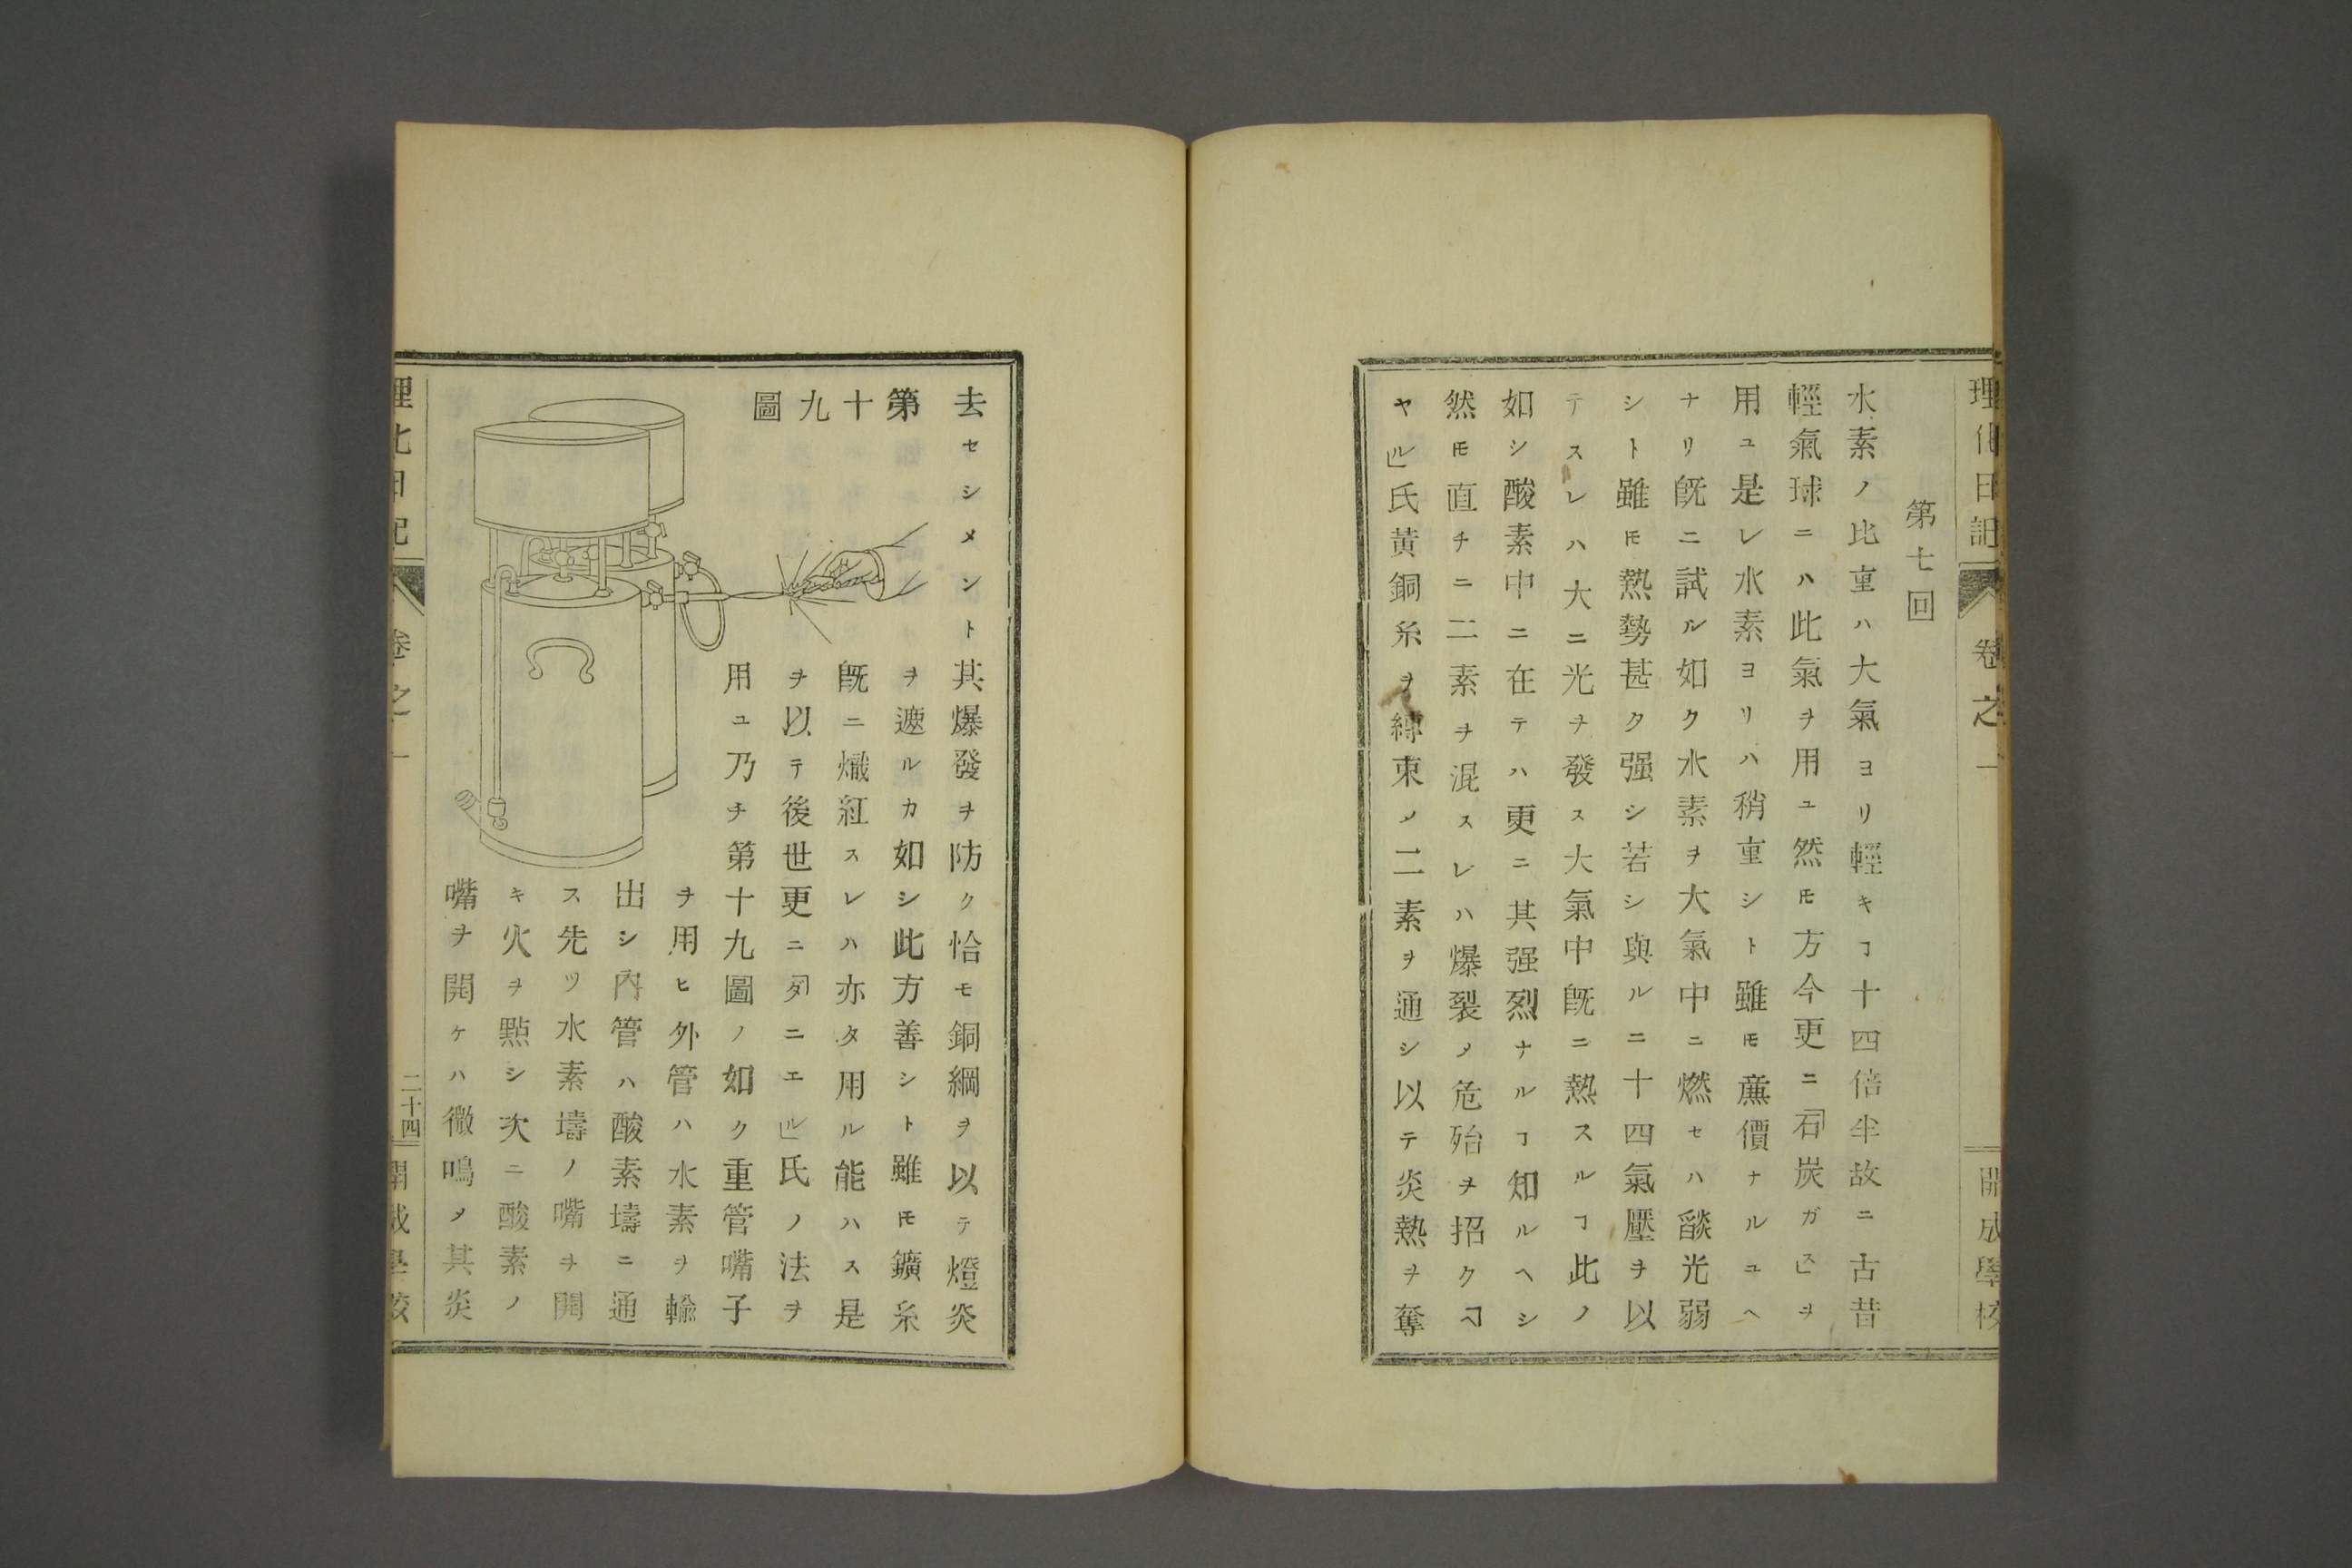 理化日記
卷之一
開成學校
第七回
水素ノ比重ハ大氣ヨリ輕キヿ十四倍半故ニ古昔
輕氣球ニハ此氣ヲ用ユ然𪜈方今更ニ「石炭ガス」ヲ
用ユ是レ水素ヨリハ稍重シト雖𪜈廉價ナルユヘ
ナリ旣ニ試ル如ク水素ヲ大氣中ニ燃セハ燄光弱
シト雖𪜈熱勢甚タ强シ若シ與ルニ十四氣壓ヲ以
テスレハ大ニ光ヲ發ス大氣中旣ニ熱スルヿ此ノ
如シ酸素中ニ在テハ更ニ其强烈ナルヿ知ルヘシ
然𪜈直チニ二素ヲ混スレハ爆裂〆危殆ヲ招クヿ
ヤル」氏黃銅糸ヲ綽束〆二素ヲ通シ以テ炎熱ヲ奪
去セシメント其爆發ヲ防ク恰モ銅綱ヲ以テ燈炎
第十九圖
ヲ遮ルカ如シ此方善シト雖𪜈鑛糸
旣ニ熾紅スレハ亦タ用ル能ハス是
ヲ以テ後世更ニ「タニエル」氏ノ法ヲ
用ユ乃チ第十九圖ノ如ク重管嘴子
ヲ用ヒ外管ハ水素ヲ輸
出シ內管ハ酸素壔ニ通
ス先ツ水素壔ノ嘴ヲ開
キ火ヲ點シ次ニ酸素ノ
嘴ヲ開ケハ微鳴〆其炎
理化日記
卷之一
二十四
開成學校